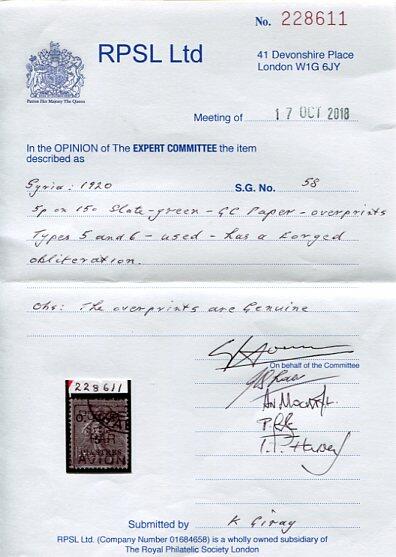 No. 228611
RPSL Ltd
Patron Her Majesty The Queen
41 Devonshire Place
London W1G 6JY
Meeting of 17 OCT 2018
In the OPINION of The EXPERT COMMITTEE the item
described as
Syria: 1920 S.G. No. 58
5p on 15c Slate-green - GC Paper - overprints
Types 5 and 6 - used - has a forged
obliteration.
Obs: The overprints are Genuine
On behalf of the Committee
228611
AVION
Submitted by K Giray
RPSL Ltd. (Company Number 01684658) is a wholly owned subsidiary of
The Royal Philatelic Society London